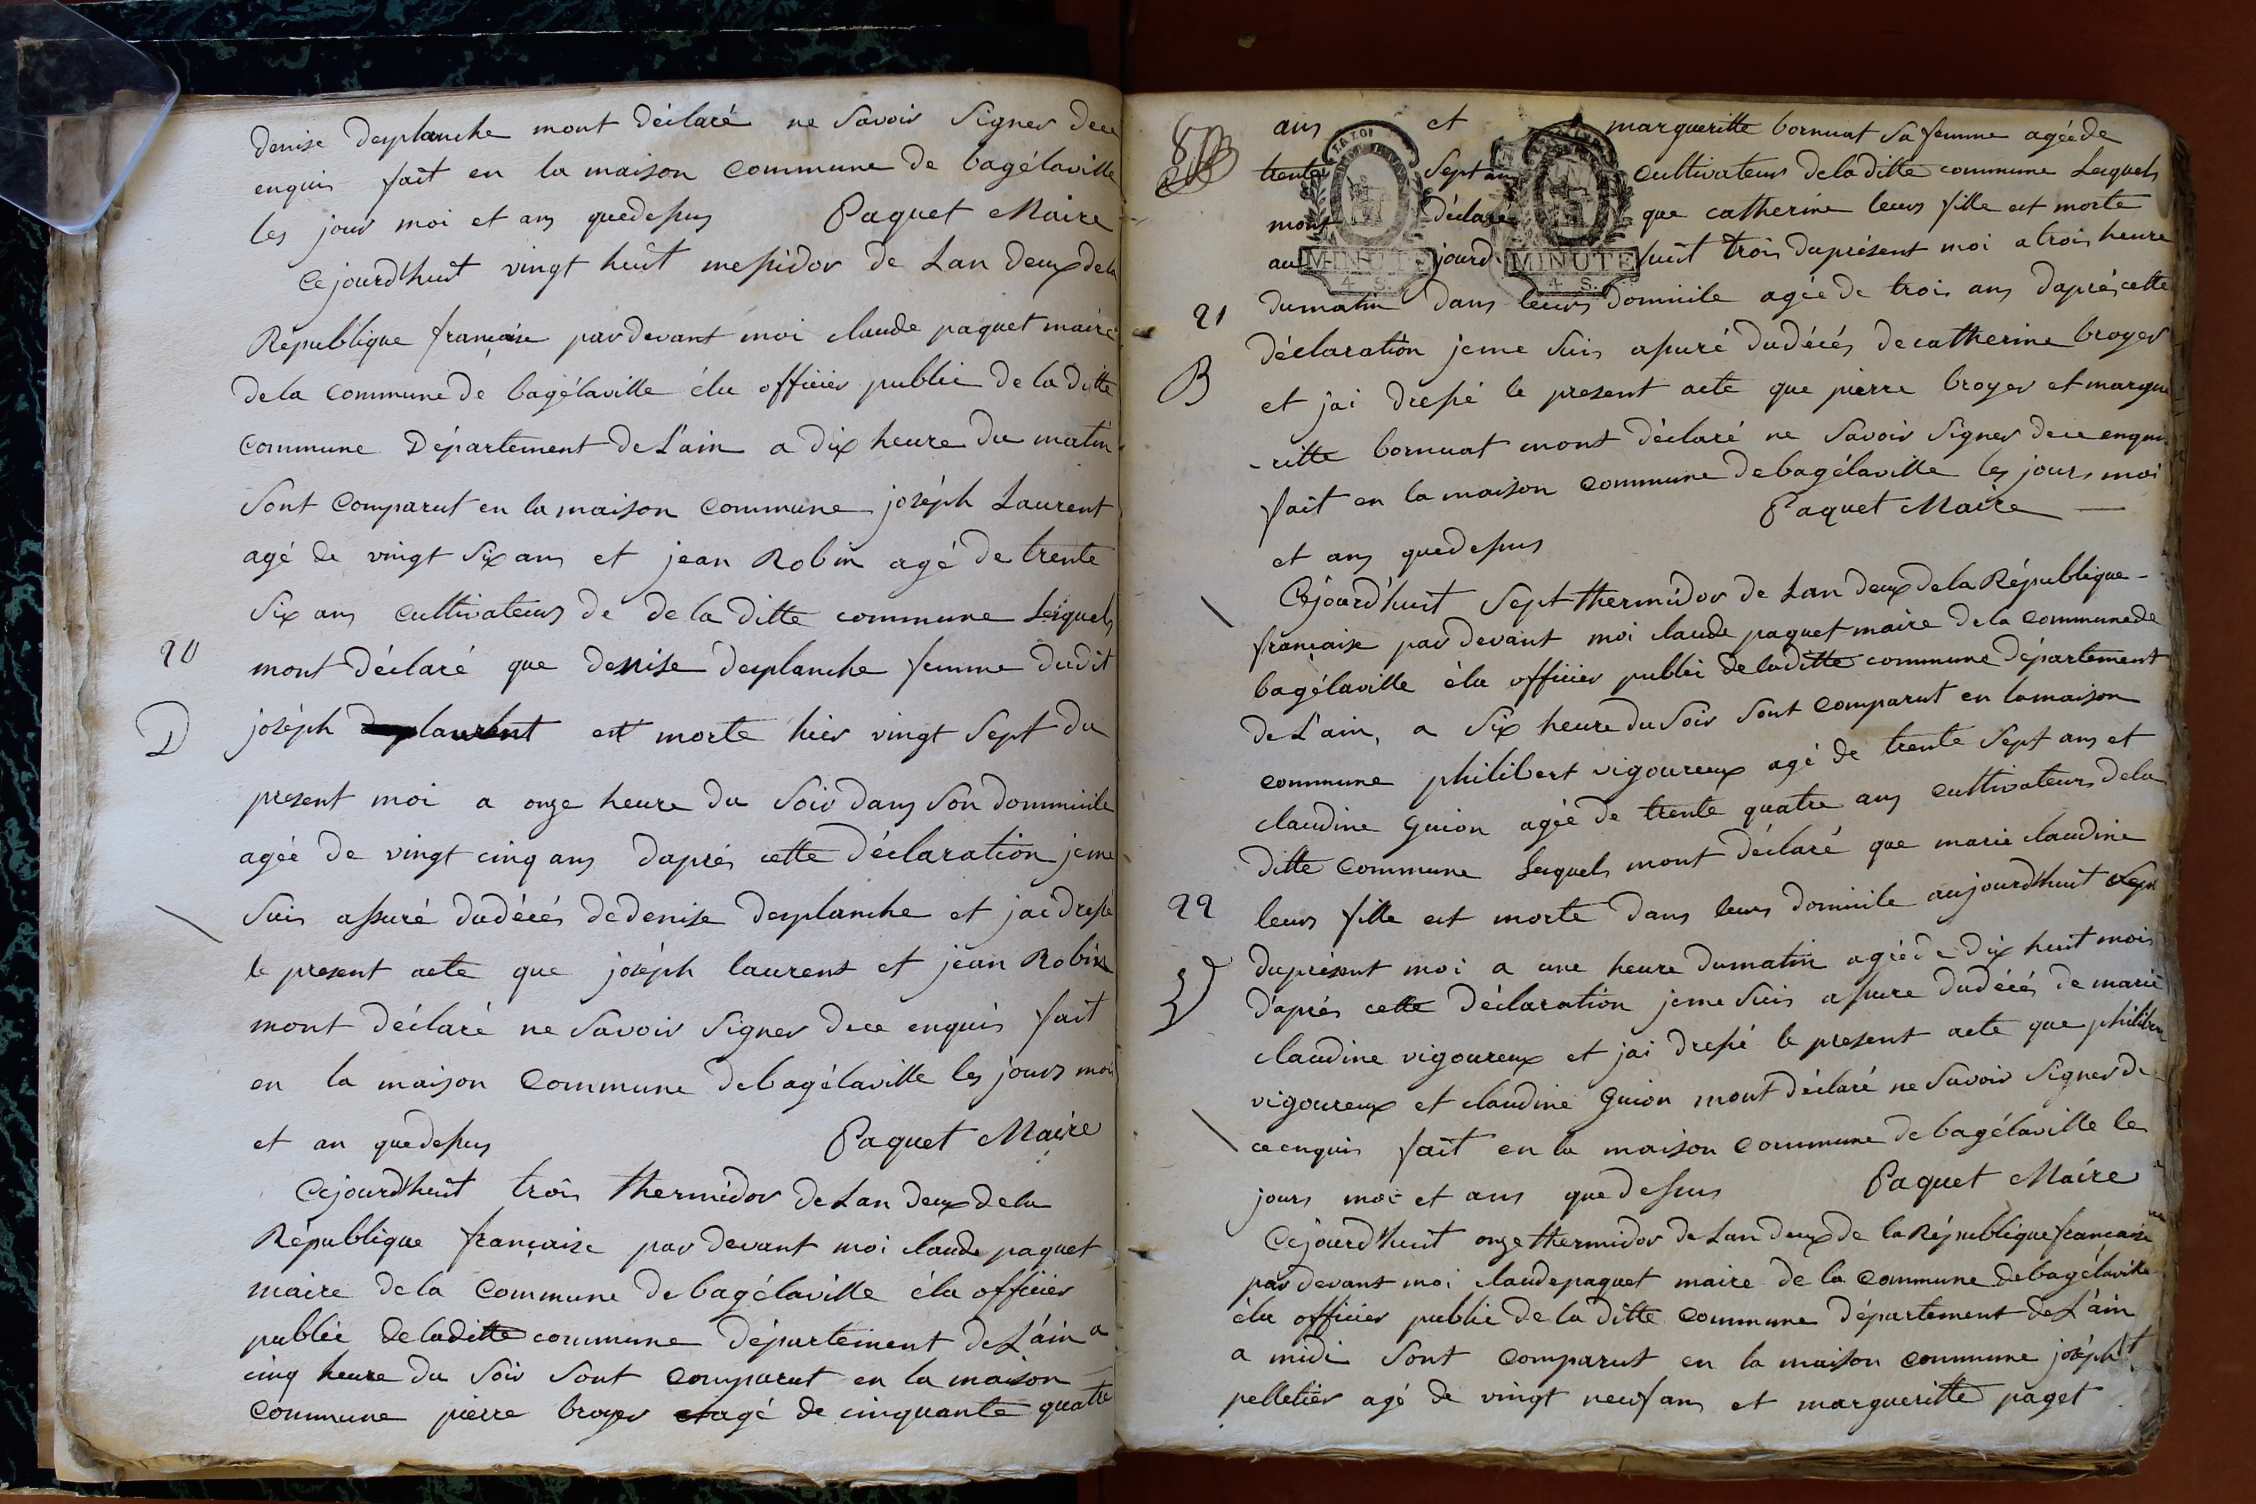 denise desplanche mont déclaré ne Savoir Signer dece
enquis fait en la maison commune de bagélaville
les jour moi et ans quedessus Paquet Maire
Cejourd'huit vingt huit messidor de Lan deux dela
République françaíse pardevant moi claude paquet maire
dela commune de bagélaville élu officier public de la ditte
commune Département de L'ain a dix heure du matin
Sont comparut en la maison commune joséph Laurent
agé de vingt Six ans et jean Robin agé de trente
Six ans cultivateurs de de la ditte commune Lesquels
20
mont déclaré que denise desplanche femme dudit
D
joséph laurent est morte hier vingt Sept du
present moi a onze heure du Soir dans Son dommicile
agée de vingt cinq ans daprés cette déclaration jeme
Suis assuré dudécés dedenise desplanche et jai dressé
le present acte que joséph laurent et jean Robin
mont déclaré ne Savoir Signer dece enquis fait
en la maison commune debagélaville les jours moi
et an quedessus Paquet Maire
Cejourd'huit trois thermidor deLan deux dela
République française par devant moi claude paquet
maire dela commune debagélaville élu officier
public deladitte commune département deL'ain a
cinq heure du Soir Sont comparut en la maison
commune pierre broyer agé de cinquante quatre
ans et margueritte bornuat Sa femme agéede
trente Sept ans cultivateurs deladitte commune Lesquels
mont déclaré que catherine leurs fille est morte
au jourd huit trois duprésent moi a trois heure
MINUTE
4 S.
MINUTE
4 S.
21
dumatin dans leurs domicile agée de trois ans daprés cette
déclaration jeme Suis assuré dudécés decatherine broyer
B
et jai dressé le present acte que pierre broyer et margue
-ritte bornuat mont déclaré ne Savoir Signer dece enquis
fait en la maison commune debagélaville les jours moi
et ans quedessus Paquet Maire
Cejourd'huit Sept thermidor de Lan deux dela République
française par devant moi claude paquet maire dela communede
bagélaville élu officier public deladitte commune département
de L'ain, a Six heure du Soir Sont comparut en lamaison
commune philibert vigoureux agé de trente Sept ans et
claudine Guion agée de trente quatre ans cultivateurs dela
ditte commune Lesquels mont déclaré que marie claudine
22
leurs fille est morte dans leurs domicile aujourdhuit Sept
duprésent moi a une heure dumatin agéede dix huit mois
d'aprés cette déclaration jeme Suis assure dudécés de marie
claudine vigoureux et jai dressé le present acte que philibert
vigoureux et claudine Guion mont déclaré ne Savoir Signer de
ceenquis fait en la maison commune debagélaville les
jours moi et ans que dessus Paquet Maire
Cejourd'huit onze thermidor de Lan deux de la République française
par devant moi claudepaquet maire de la commune debagélaville
élu officier public de la ditte commune département de L'ain
a midi Sont comparut en la maison commune joséph
pelletier agé de vingt neuf ans et margueritte paget